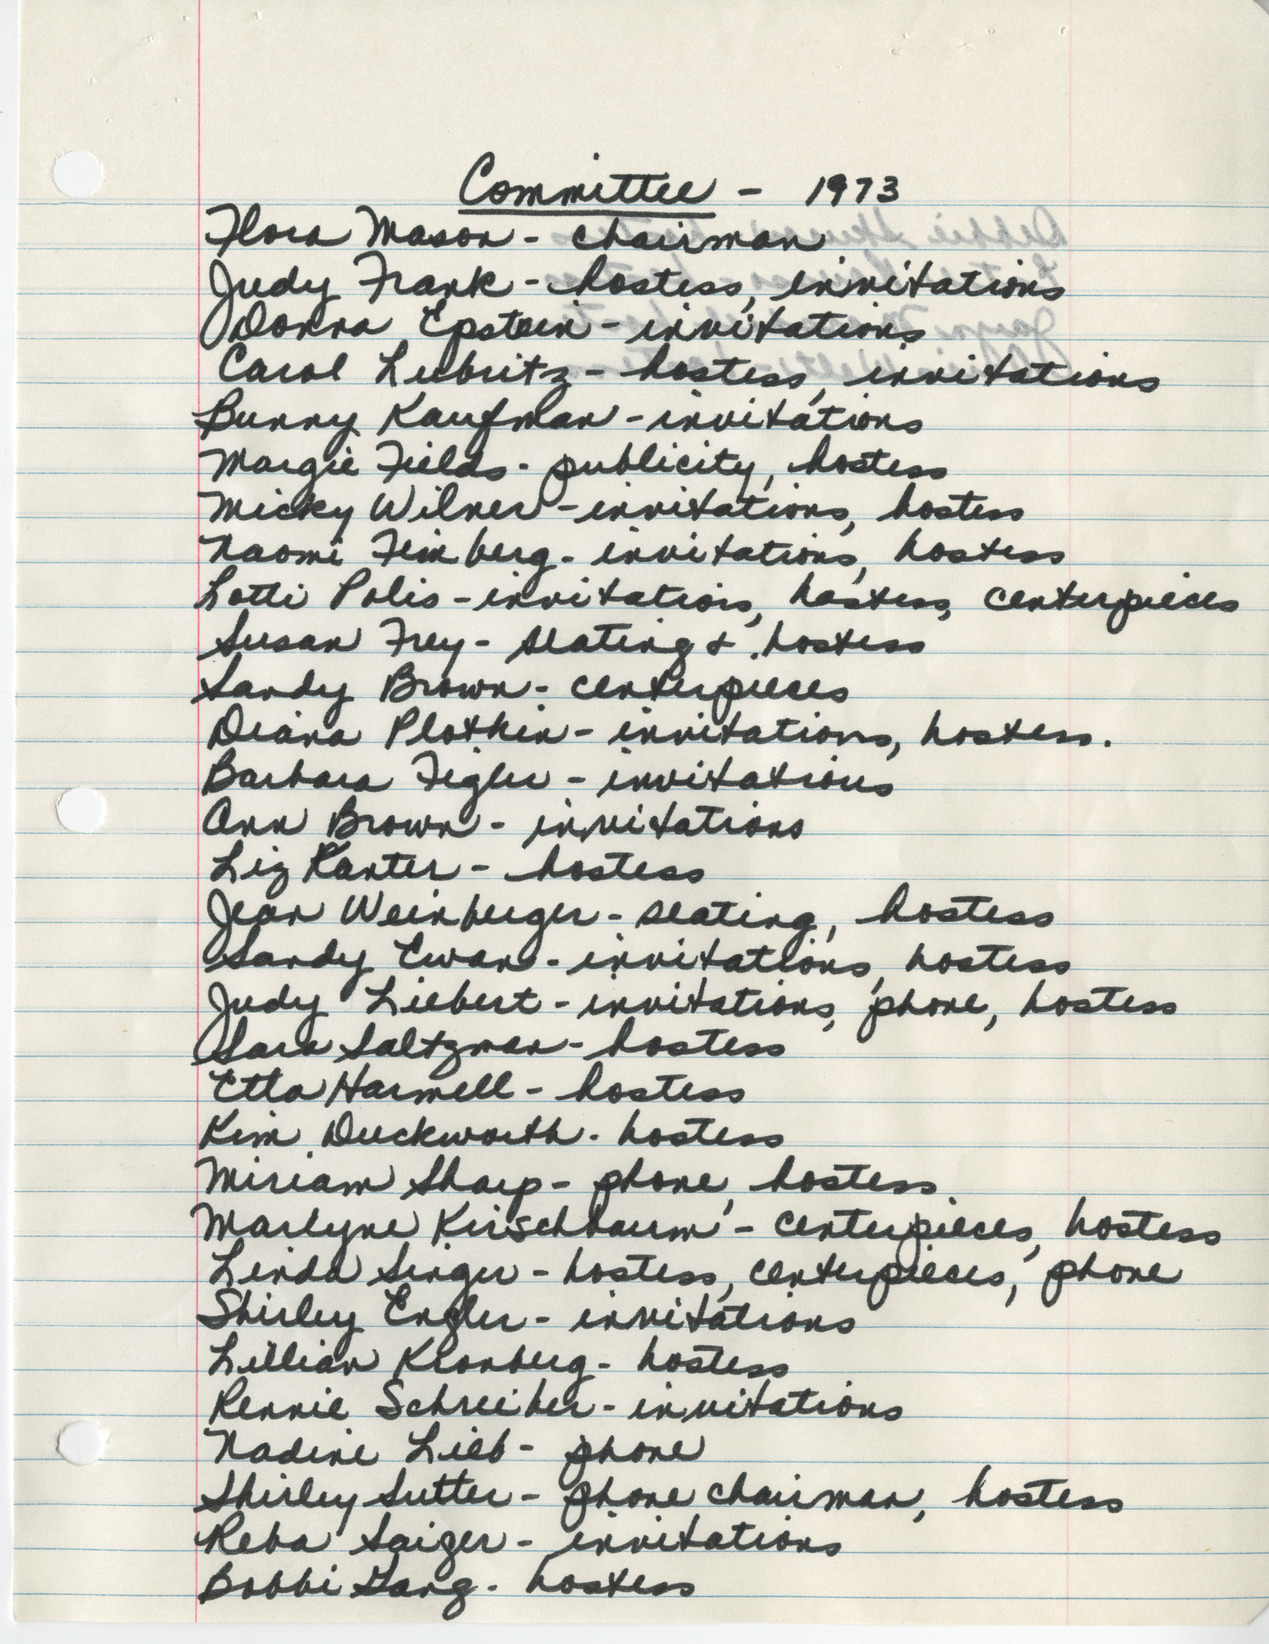 Committee - 1973
Flora Mason - chairman
Judy Frank - hostess, invitations
Donna Epstein - invitations
Carol Leibritz - hostess, invitations
Bunny Kaufman - invitations
Margie Fields - publicity, hostess
Micky Wilner - invitations, hostess
Naomi Feinberg - invitations, hostess
Lotti Polis - invitations, hostess, centerpieces
Susan Frey - seating & hostess
Sandy Brown - centerpieces
Diana Plotkin - invitations, hostess.
Barbara Figler - invitations
Ann Brown - invitations
Liz Kanter - hostess
Jean Weinberger - seating, hostess
Sandy Ewan - invitations, hostess
Judy Liebert - invitations, phone, hostess
Sara Saltzman - hostess
Etta Harmell - hostess
Kim Duckworth - hostess
Miriam Sharp - phone, hostess
Marlyne Kirschbaum - centerpieces, hostess
Linda Singer - hostess, centerpieces, phone
Shirley Engler - invitations
Lillian Kronberg - hostess
Rennie Schreiber - invitations
Nadine Lieb - phone
Shirley Sutter - phone chairman, hostess
Reba Saiger - invitations
Bobbi Gang - hostess